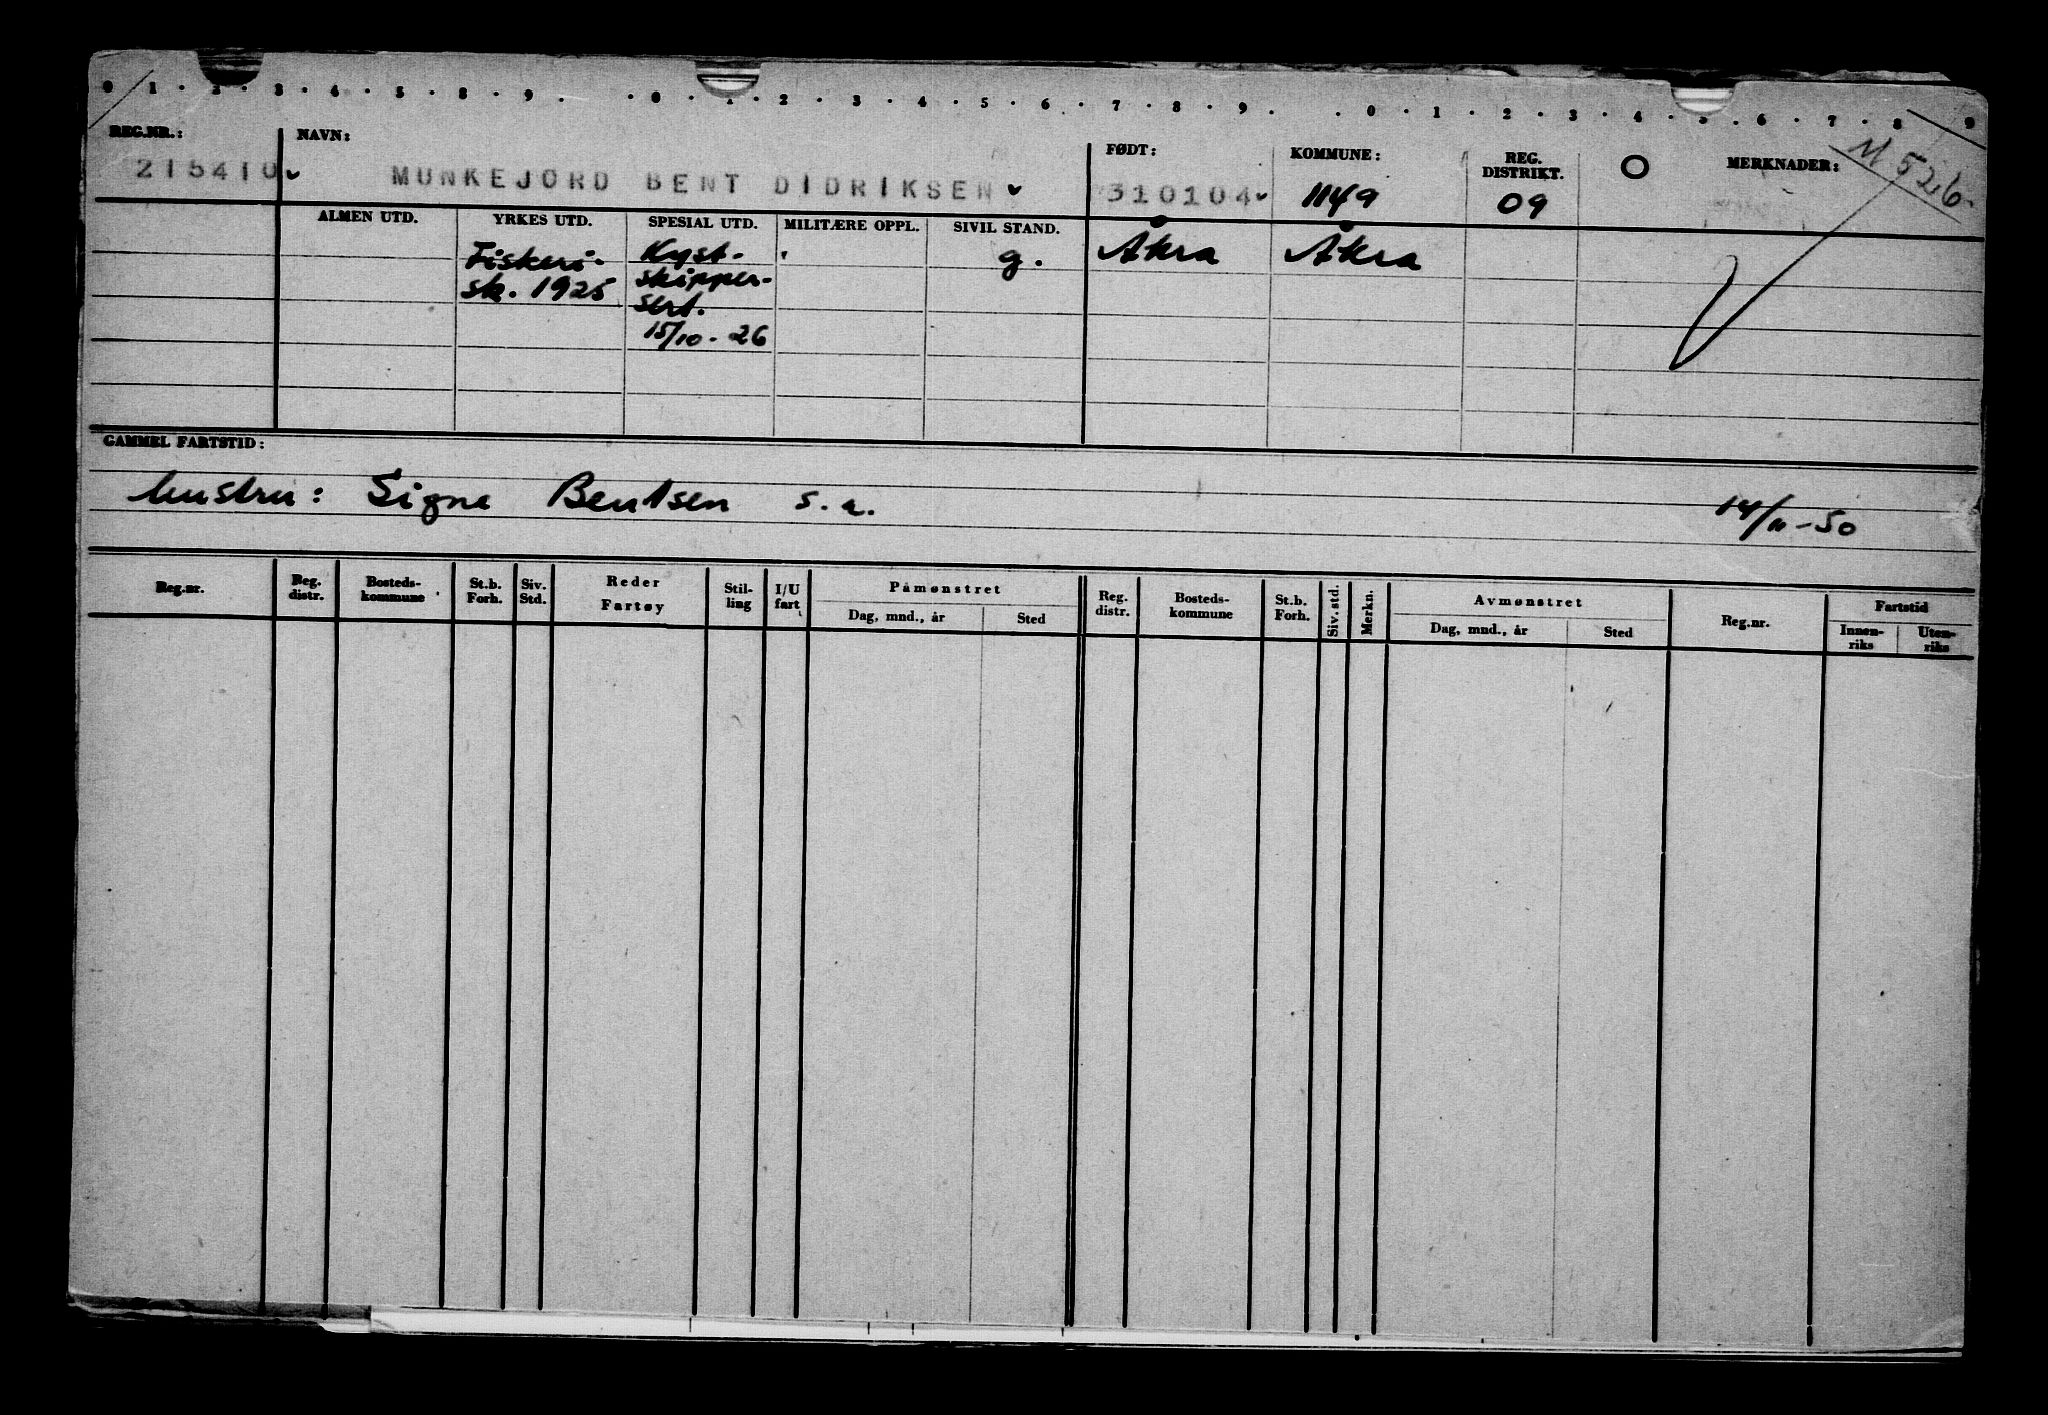 0 1 · 2 · 3 · 4 · 5 · 8 · 9 · · 0 · 1 · 2 · 3 · 4 · 5 · 6 · 7 · 8 · 9 · · 0 · 1 · 2 · 3 · 4 · 5 · 6 · 7 · 8 9
REG.NR.: NAVN: FØDT: KOMMUNE: REG. DISTRIKT. O MERKNADER: M 526.
215410 MUNKEJORD BENT DIDRIKSEN 310104 1149 09
ALMEN UTD. YRKES UTD. SPESIAL UTD. MILITÆRE OPPL. SIVIL STAND.
Fiskeri- Kyst- g. Åkra Åkra
sk. 1925 skipper-
sert.
15/10 - 26
GAMMEL FARTSTID:
hustru: Signe Bentsen s.a. 14/11-50
Reg.nr. Reg. distr. Bosteds- kommune St.b. Forh. Siv. Std. Reder Fartøy Stil- ling I/U fart Påmønstret Reg. distr. Bosteds- kommune St.b. Forh. Siv. std. Merkn. Avmønstret Reg.nr. Fartstid
Dag, mnd., år Sted Dag, mnd., år Sted Innen- riks Uten- riks